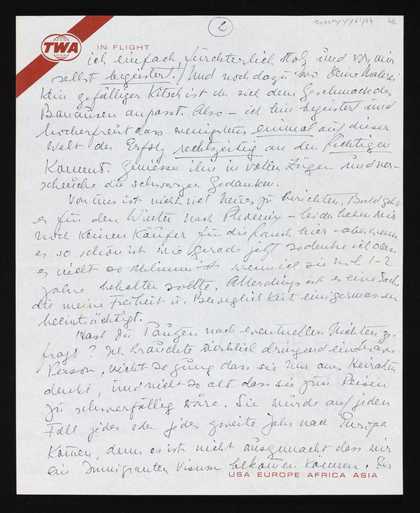 2
TWA
IN FLIGHT
ich einfach fürchterlich stolz und von mir
selbst begeistert! Und noch dazu wo Deine Malerei
kein gefälliger Kitsch ist der sich dem Geschmack der
Banausen anpasst. Also – ich bin begeistert und
hocherfreut dass wenigstens einmal auf dieser
Welt der Erfolg rechtzeitig an den Richtigen
kommt. Geniesse ihn in vollen Zügen und ver-
scheuche die schwarzen Gedanken.
Von uns ist nicht viel Neues zu berichten. Bald geht
es für den Winter nach Phoenix – leider haben wir
noch keinen Käufer für die Ranch hier – aber wenn
es so schön ist wie gerade jetzt so denke ich
es nicht so schlimm ist wenn ich sie noch 1–2
Jahre behalten sollte. Allerdings ist es eine Sache
die meine Freiheit u. Beweglichkeit einigermassen
beeinträchtigt.
Hast Du nach eventuellen Nichten ge-
fragt? Ich bräuchte ziemlich dringend eine
Person, nicht so jung dass sie nur ans Heiraten
denkt, und nicht so alt dass sie zum Reisen
zu schwerfällig wäre. Sie würde auf jeden
Fall jedes oder jedes zweite Jahr nach Europa
kommen, denn es ist nicht ausgemacht dass wir
ein Immigranten Visum bekommen können.
USA EUROPE AFRICA ASIA